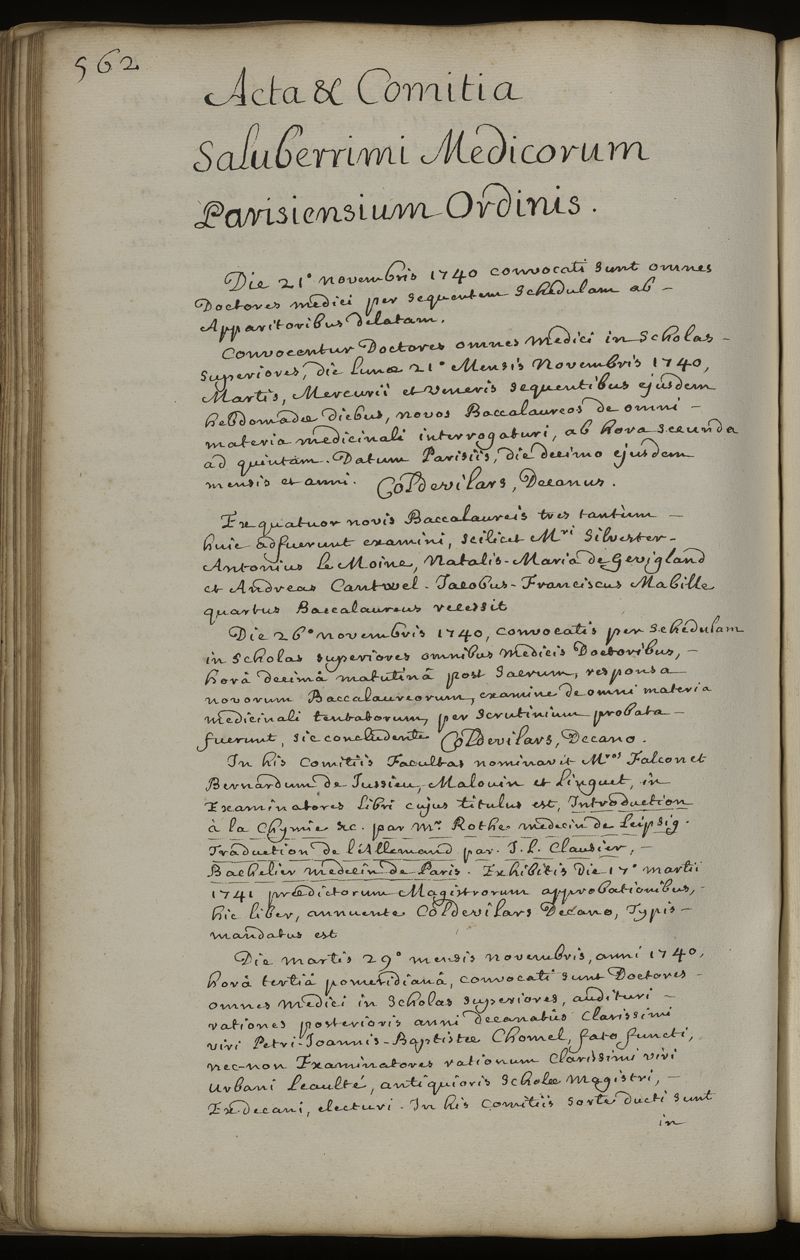 562
Acta & Comitia
Saluberrimi Medicorum
Parisiensium Ordinis.
Die 21° novembris 1740 convocati sunt omnes
Doctores medici per sequentem schedulam ab -
Apparitoribus delatam.
Convocentur Doctores omnes medici in Scholas -
superiores, die lunæ 21° Mensis Novembris 1740,
Martis, Mercurii et Veneris sequentibus ejusdem
hebdomadæ diebus, novos Baccalaureos de omni -
materia medicinali interrogaturi, ab hora secunda
ad quintam. Datum Parisiis, die decimo ejusdem
mensis et anni. Col De vilars, Decanus.
Ex quatuor novis Baccalaureis tres tantùm -
huic adfuerunt examini, scilicet Mri Silvester-
Antonius le Moine, Natalis-Maria de Gevigland
et Andreas Cantwel. Jacobus-Franciscus Mabille
quartus Baccalaureus recessit
Die 26° novembris 1740, convocatis per schedulam
in scholas superiores omnibus medicis Doctoribus, -
horâ decimâ matutinâ post sacrum, responsa
novorum Baccalaureorum, examine de omni materia
medicinali tentatorum, per scrutinium probata -
fuerunt, sic concludente Col De vilars, Decano.
In his Comitiis Facultas nominavit Mros Falconet
Bernardum de Jussieu, Malouin et Linguet, in
Examinatores libri cujus titulus est, Introduction
à la Chymie &c. par Mr. Rothe medecin de Leipsig.
Traduction de l'Allemand par J. L. Clausier, -
Bachelier medecin de Paris. Exhibitis die 17° martii
1741 prædictorum Magistrorum approbationibus, -
hic liber, annuente Col De vilars Decano, Typis -
mandatus est
Die martis 29° mensis novembris, anni 1740,
horâ tertiâ pomeridianâ, convocati sunt Doctores -
omnes medici in Scholas superiores, audituri -
rationes posterioris anni decanatûs clarissimi
viri Petri-Joannis-Baptistæ Chomel, fato functi,
nec-non Examinatores rationum clarissimi viri
Urbani Leaulté, antiquioris scholæ magistri, -
Exdecani, electuri. In his Comitiis sorte ducti sunt
in